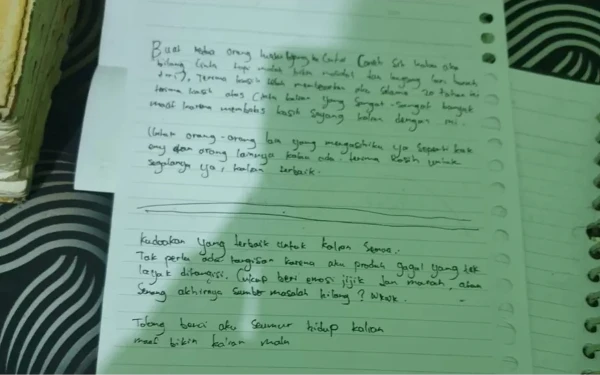 Buat kedua orang
bilang cinta tapi malah bikin masalah dan
Terima kasih telah membesarkan aku selama 20 tahun ini
terima kasih atas cinta kalian yang sangat-sangat banyak
maaf karena membalas kasih sayang kalian dengan ini.
Untuk orang-orang lain yang mengasihiku ya seperti kak
dan orang lainnya kalau ada. terima kasih untuk
segalanya ya, kalian terbaik.
Kudoakan yang terbaik untuk kalian semua.
Tak perlu ada tangisan karena aku produk gagal yang tak
layak ditangisi. Cukup beri emosi jijik dan marah, atau
senang akhirnya sumber masalah hilang? Wkwk.
Tolong benci aku seumur hidup kalian
maaf bikin kalian malu